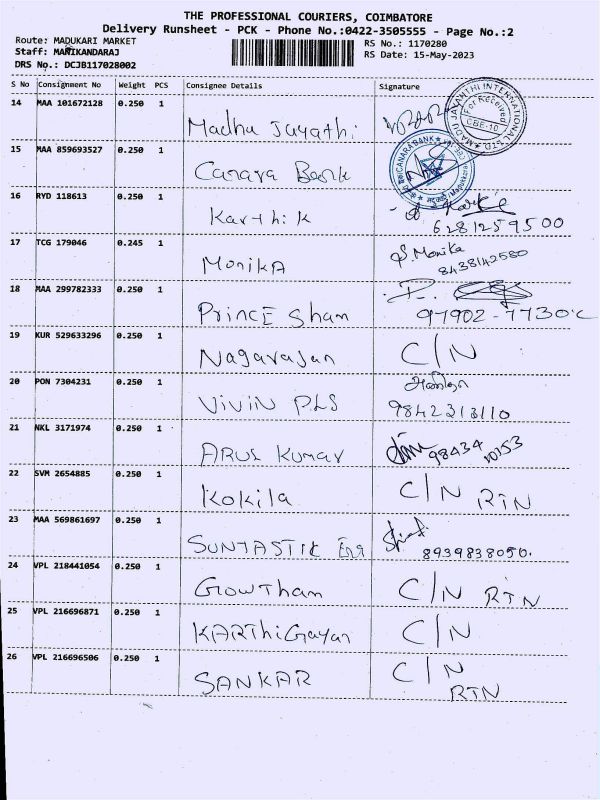 THE PROFESSIONAL COURIERS, COIMBATORE
Delivery Runsheet - PCK - Phone No.:0422-3505555 - Page No.:2
Route: MADUKARI MARKET
RS No.: 1170280
Staff: MANIKANDARAJ
RS Date: 15-May-2023
DRS No.: DCJB117028002
S No Consignment No Weight PCS Consignee Details Signature
14 MAA 101672128 0.250 1
Madhu Jayathi
MADU JAYANTHI INTERNATIONAL LTD
For Received
CBE-10
15 MAA 859693527 0.250 1
Canara Bank
CANARA BANK
16 RYD 118613 0.250 1
Karthik
6281259500
17 TCG 179046 0.245 1
Monika
S. Monika
8438142580
18 MAA 299782333 0.250 1
PrincE Sham
97902-7730
19 KUR 529633296 0.250 1
Nagarajan C/N
20 PON 7304231 0.250 1
ViViN PLS
9842313110
21 NKL 3171974 0.250 1
ARUL Kumar
98434 10153
22 SVM 2654885 0.250 1
Kokila C/N RTN
23 MAA 569861697 0.250 1
SUNTASTIK Eng
8939838050.
24 VPL 218441054 0.250 1
Gowtham C/N RTN
25 VPL 216696871 0.250 1
KARThiGayan C/N
26 VPL 216696506 0.250 1
SANKAR C/N
RTN